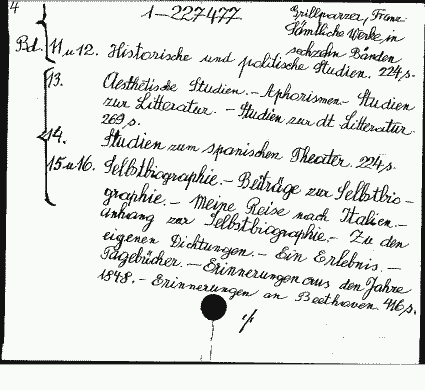 4
1-227477
Grillparzer, Franz
Sämtliche Werke in
sechzehn Bänden
Bd. 11 u 12. Historische und politische Studien. 224 s.
13. Aesthetische Studien.-Aphorismen- Studien
zur Litteratur. - Studien zur dt Litteratur.
269 s.
14. Studien zum spanischen Theater. 224 s.
15 u 16. Selbstbiographie.- Beiträge zur Selbstbio-
graphie.- Meine Reise nach Italien.-
Anhang zur Selbstbiographie.- Zu den
eigenen Dichtungen.- Ein Erlebnis.-
Tagebücher.- Erinnerungen aus dem Jahre
1848.- Erinnerungen an Beethoven 416 s.